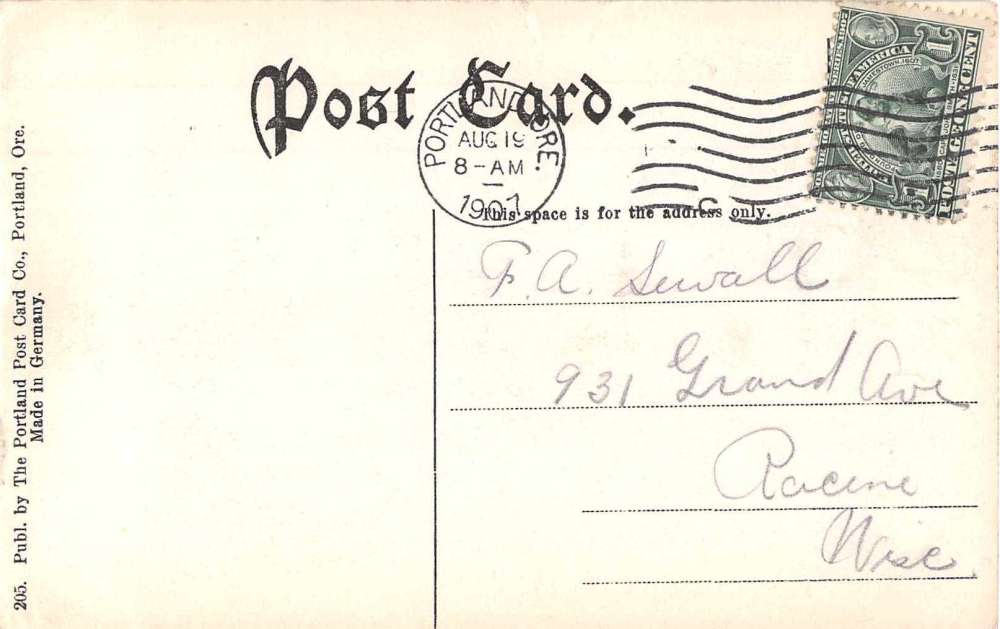 Post Card.
PORTLAND, ORE.
AUG 19
8-AM
1907
This space is for the address only.
F. A. Sewall
931 Grand Ave
Racine
Wisc
205. Publ. by The Portland Post Card Co., Portland, Ore.
Made in Germany.
1
1
POSTAGE ONE CENT